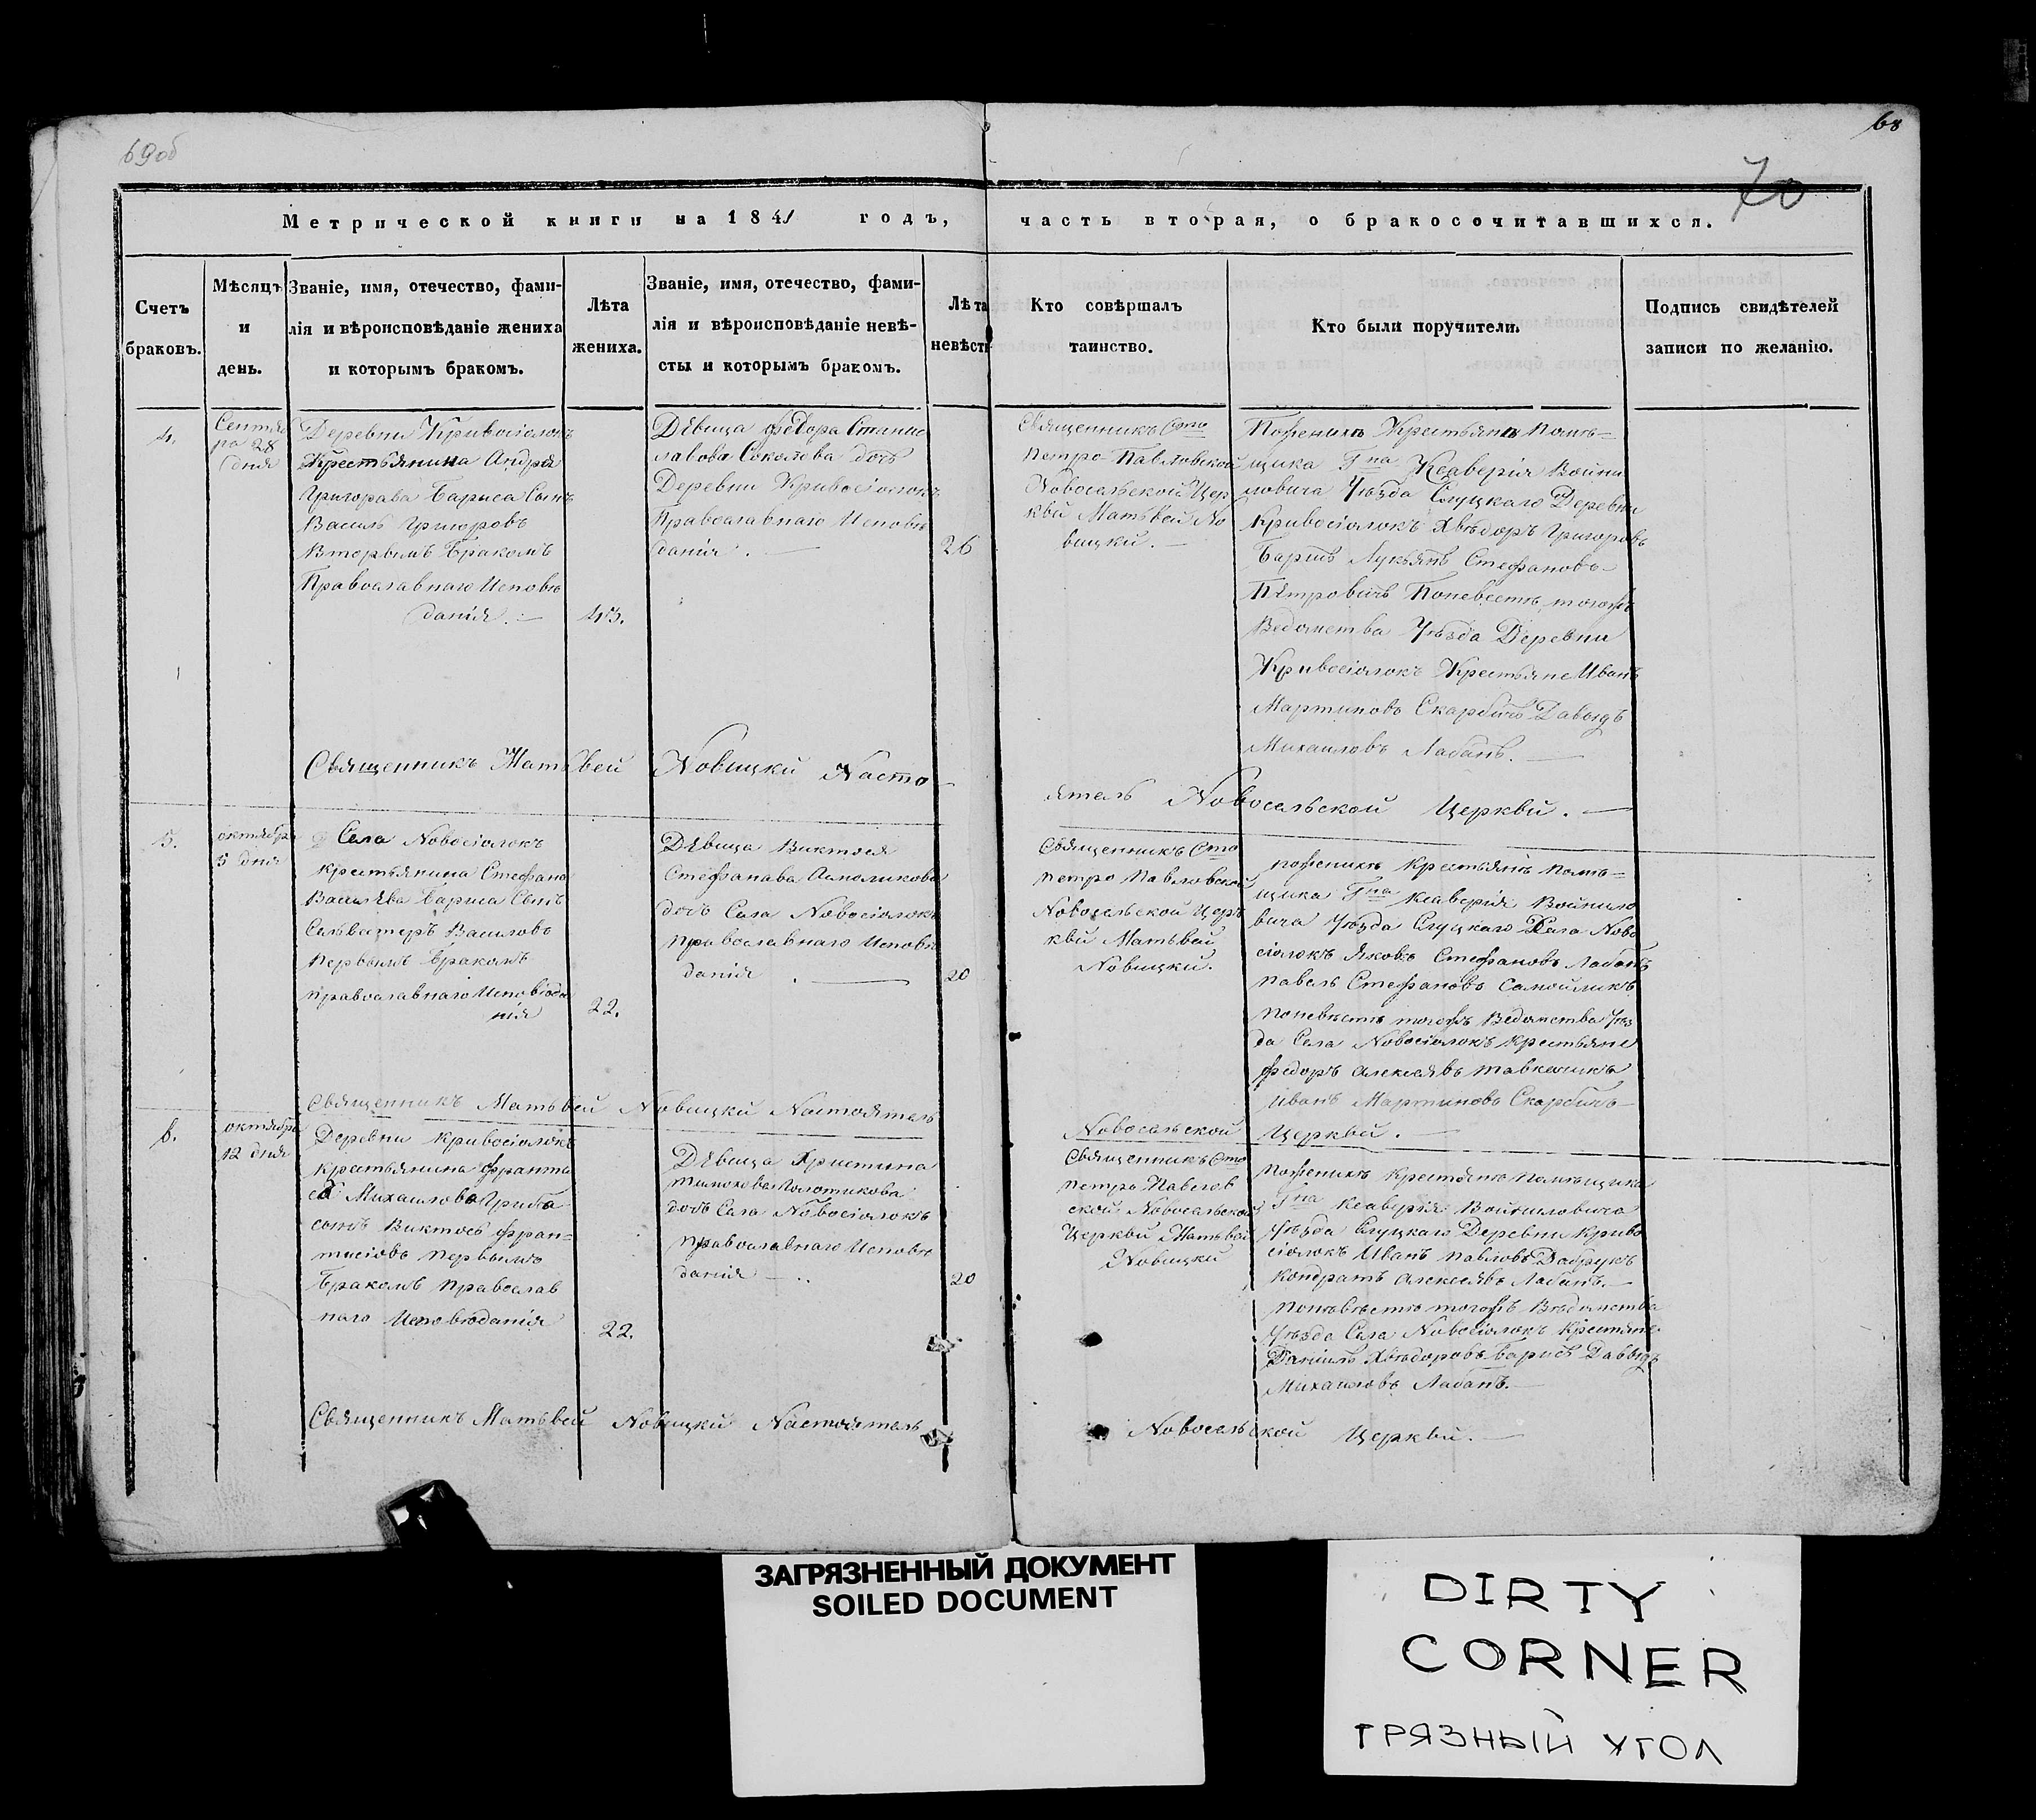 69об
68
70
Метрической книги на 1841 годъ, часть вторая, о бракосочитавшихся.
Счетъ браковъ.
Мѣсяцъ и день.
Званіе, имя, отечество, фами-
лія и вѣроисповѣданіе жениха
и которымъ бракомъ.
Лѣта жениха.
Званіе, имя, отечество, фами-
лія и вѣроисповѣданіе невѣ-
сты и которымъ бракомъ.
Лѣта невѣсты
Кто совѣршалъ
таинство.
Кто были поручители.
Подпись свидѣтелей
записи по желанію.
4.
Сентяб
ра 28
дня
Деревни Кривосіолокъ
Крестьянина Андрея
Григорава Бариса Сынъ
Василь Григоровъ
Вторымъ Бракомъ
Православнаго Исповѣ
данія.
45.
Дѣвица Федора Станис
лавова Соколова дочь
Деревни Кривосіолокъ
Православнаго Исповѣ
данія.
26
Священникъ Сто
Петро Павловской
Новосельской Цер
кви Матьвей Но
вицкій.
Поженихѣ Крестьяня Помѣ-
щика Гна Ксаверія Войни
ловича Уѣзда Слуцкаго Деревни
Кривосіолокъ Хвѣдоръ Григоровъ
Барисъ Лукьянъ Стефановъ
Пѣтровичъ Поневестѣ тогожъ
Ведомства Уѣзда Деревни
Кривосіолокъ Крестьяне Иванъ
Мартиновъ Скарбичъ Давыдъ
Михаиловъ Лабанъ.
Священникъ Матьвей Новицки Насто-
ятель Новосельской Церкви.
5.
октября
5 дня
Села Новосіолокъ
крестьянина Стефана
Василява Бариса Сынъ
Сильвестеръ Василовъ
Первымъ Бракомъ
православнаго Исповѣда
нія
22.
Дѣвица Виктося
Стефанава
дочь Села Новосіолокъ
православнаго Исповѣ
данія
20
Священникъ Сто
Петро Павловской
Новосельской Цер
кви Матьвей
Новицкій.
поженихѣ Крестьянѣ помѣ-
щика Гна Ксаверія Войнило
вича Уѣзда Слуцкаго Села Ново
сіолокъ Яковъ Стефановъ Лабанъ
Павелъ Стефановъ Самойликъ
поневѣстѣ тогожъ Ведомства Уѣз
да Села Новосіолокъ Крестьяне
Федоръ Алексѣевъ
Иванъ Мартиновъ Скорбичъ
Священникъ Матьвей Новицки Настоятель
Новосельской Церкви.
6.
октября
12 дня
Деревни Кривосіолокъ
крестьянина Франти
Михаилова Гриба
сынъ Виктосъ Фран-
тисіовъ первымъ
Бракомъ православ
наго Исповѣданія
22.
Дѣвица Христина
дочь Села Новосіолокъ
православнаго Исповѣ
данія
20
Священникъ Сто
Петро Павлов
ской Новосельской
Церкви Матьвей
Новицкій
поженихѣ крестянѣ помѣщика
Гна Ксаверія Войниловича
Уѣзда Слуцкаго Деревни Криво
сіолокъ Иванъ Павловъ Дабрукъ
Кондратъ Алексѣевъ Лабанъ.
поневѣстѣ тогожъ Вѣдомства
Уѣзда Села Новосіолокъ Крестяне
Даніилъ Хвѣдоровъ Барисъ Давыдъ
Михаиловъ Лабанъ.
Священникъ Матьвей Новицкій Настоятель
Новосельской Церкви.
ЗАГРЯЗНЕННЫЙ ДОКУМЕНТ
SOILED DOCUMENT
DIRTY
CORNER
ГРЯЗНЫЙ УГОЛ